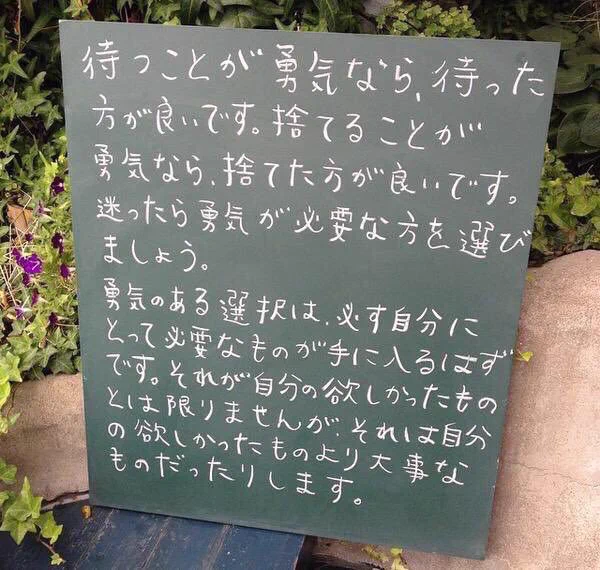 待つことが勇気なら、待った
方が良いです。捨てることが
勇気なら、捨てた方が良いです。
迷ったら勇気が必要な方を選び
ましょう。
勇気のある選択は、必ず自分に
とって必要なものが手に入るはず
です。それが自分の欲しかったもの
とは限りませんが、それは自分
の欲しかったものより大事な
ものだったりします。